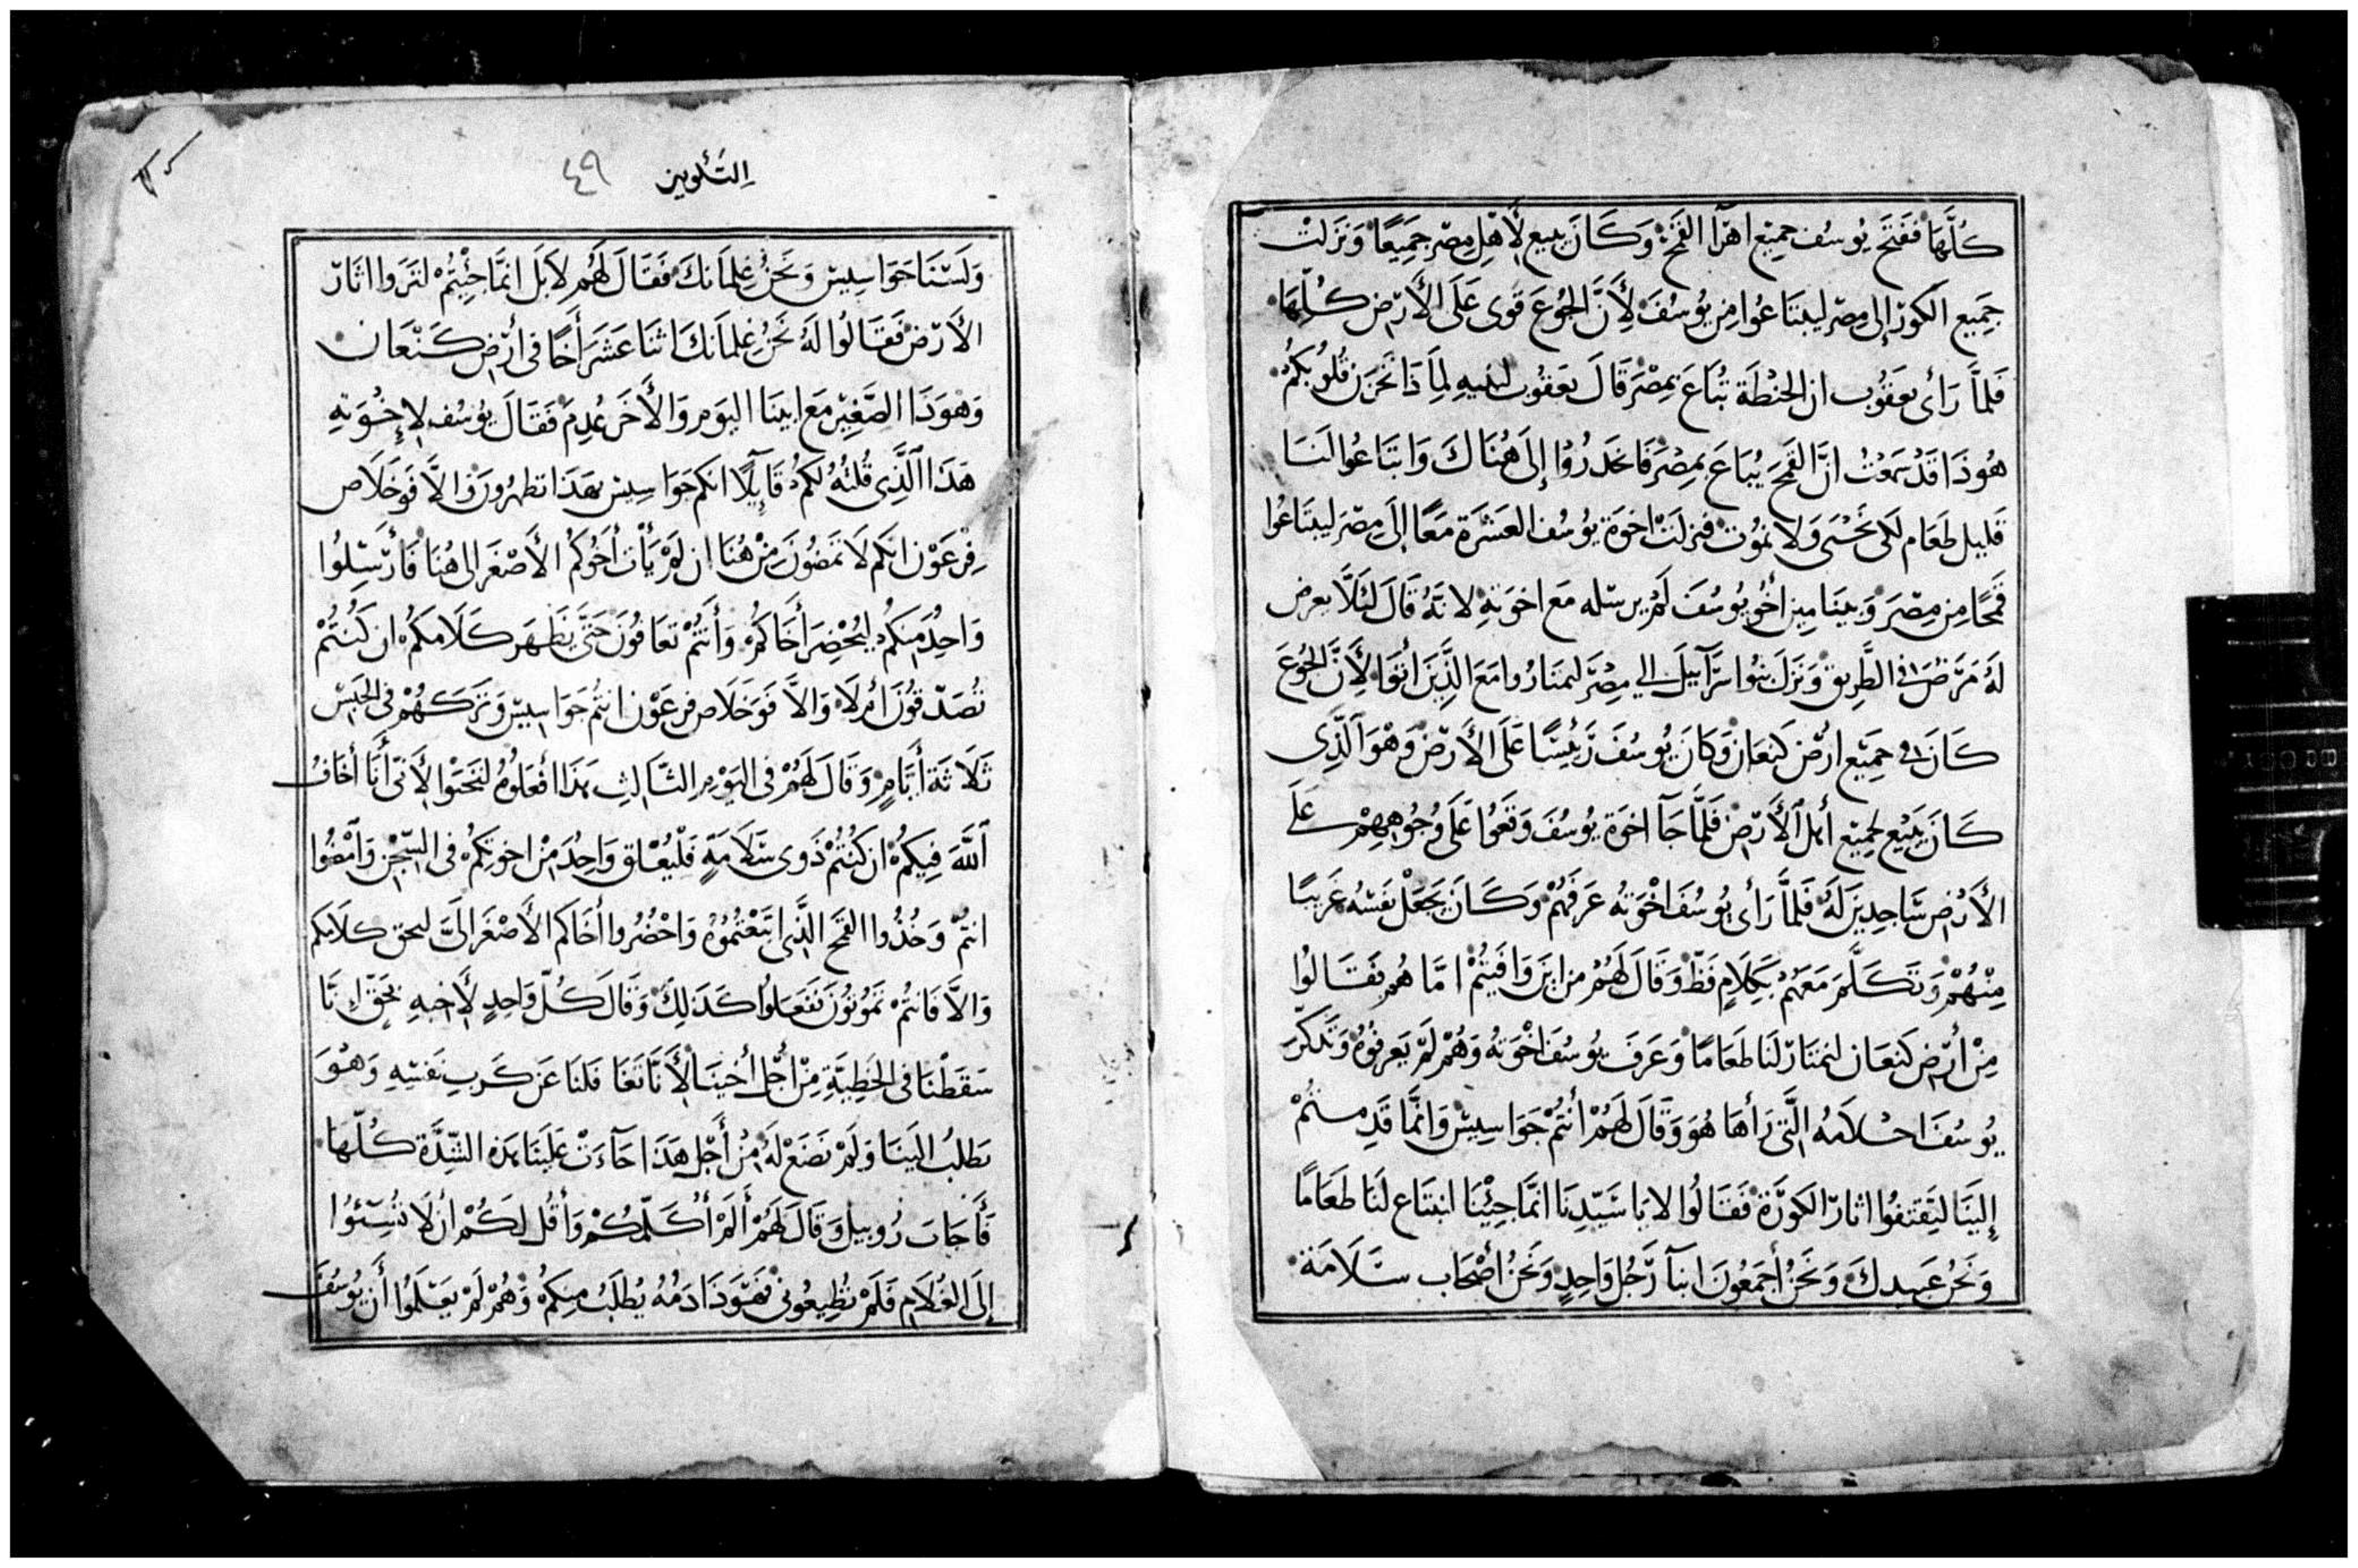 كُلَّهَا فَفَتَحَ يُوسُف جَمِيْع اهرَآ القَمْحَ وَكَانَ يبيع لأَهْلِ مِصْر جَمِيعًا وَنَزَلَتْ
جَمِيع الكوَرْ إلى مِصْر ليبتَاعُوا مِن يُوسُفَ لِأَنَّ الجُوعَ قَوى عَلَى الأَرْض كُلِّهَا
فَلمَّا رَأى يعَقُوب ان الحِنْطَة تُبَاعَ بمِصْرَ قَالَ يعَقوُب لبَنيهِ لِمَا ذَا تحْزَن قُلُوبكُمْ
هُوذَا قَدْ سَمِعْتُ انَّ القَمْحَ يُبَاعَ بِمِصْرَ فَاحَدرُوْا إلى هُنَاكَ وَابتَاعُوا لَنَا
قَليل طَعَام لكَى نَحْيَى وَلا نمُوْت فنزلَتْ اخوَة يُوسُف العَشْرَة مَعًا إلىَ مِصْرَ ليبْتَاعُوا
قَمْحًا مِن مِصْرَ وَبنيَامِين أخُو يُوسُفَ لَمْ يرسله مَع اخوَتهِ لانَّهُ قَالَ لئَلَّا يعرض
لَهُ مَرَّضٌ فى الطَّرِيق وَنَزلَ بنُوا اسرَآييلَ الي مِصْرَ ليمتَارُوا مَعَ الذِّينَ أتوَا لأَنَّ الجُوعَ
كَانَ فى جمِيْع ارْض كنعَان وَكَانَ يُوسُفَ رَئيسًا عَلَى الأَرْض وَهْوَ الَّذِى
كَانَ يَبيْع لجميْع أهل الأَرْض فَلَمَّا جَآ اخوَة يُوسُفَ وَقَعَوُا عَلَى وُجُوهِهِمْ عَلَى
الأَرْض سَاجدِينَ لَهُ فَلَمَّا رَأى يُوسُفَ اخْوَتهُ عَرفَهُمْ وَكَانَ يَجَعَلْ نَفسَهُ غَريبًا
مِنْهُمْ وَتكَلَّمَ مَعَهُمْ بَكَلَامٍ فَظّ وَقَالَ لَهُمْ من ايَن وَافَيتُمْ امَّا هُمُ فقَالُوا
مِنْ أرْض كنعَان لنمتَارْ لَنَا طعَامًا وَعَرَفَ يُوسُفَ اخْوَتهُ وَهُمْ لَمْ يَعرفُوهُ وَتَذكَّرَ
يُوسُفَ احْلَامُه الَّتى رَأهَا هُوَ وَقَالَ لَهُمْ أنتُمْ جَوَاسِيسْ وَانَّمَا قَدِمتُمْ
إلينَا لتِقتفوُا اثارْ الكوُرَة فَقَالُوا لا يَا سَيّدنَا انمَّا جِئْنَا ابتَاع لَنَا طَعَامًا
وَنَحْنُ عَبيدكَ وَنحَنُ أجمَعُونَ ابنَآ رَّجُل وَاحِدٍ وَنَحَنُ أصْحَاب سَلَامَة
التَكْوين ٤٩
وَلَسْنَا جَوَاسِيسْ وَنحَنُ غِلمَانكَ فَقَالَ لَهُم لاَ بَل انمَّا جئِتُمْ لتَرَوا اثَارْ
الأَرْض فَقَالُوا لَهُ نَحْنُ غِلمَانكَ اثنَا عَشَرَ أَخًا فى أرْض كَنْعَان
وَهْوَ ذَا الصَّغِيْر مَع ابينَا اليوَم وَالأَخَر عُدِمَ فَقَالَ يُوسُف لإخُوَتهِ
هَذَا الَّذِى قُلتُهُ لكمُ قَآيِلًا انكم جَوَاسِيس بهَذَا تظهرُون وَالاَّ فَوخَلَاص
فِرعَوْن انكم لَا تَمضُونَ مِنْ هُنَا ان لَمْ يَأت أخُوكمُ الأَصْغَر الى هُنَا فَأرْسِلُوا
وَاحِدُ مِنكمُ ليُحْضِرَ أَخَاكمْ وَأنتُمْ تعَاقوُنَ حَتَّى يَظَهَر كَلَامكمُ ان كُنتُمْ
تُصَدّقوُنَ أمْ لَا وَالاَّ فَوَخَلَاص فرعَوْن انتُم جَوَاسِيسْ وَتَركَهُمْ فى الحَبْس
ثَلَاثَة أَيَّامٍ وَقَالَ لَهُمْ فى اليَوْمِ الثَّالِثِ هَذَا أفعَلوُهُ لتَحيَوْا لأَنىّ أَنَا أَخَافُ
اللَّهَ فِيكمُ ان كُنْتُمْ ذَوِى سَلَامَةٍ فَلْيُعْاق وَاحِدَ مِنْ اخوَتكمُ فى السِّجْنِ وَامْضُوا
انتُمْ وَخُذُوا القَمْح الذِّى ابتَعْتُمُوهُ وَاحْضُرُوا أَخَاكم الأَصْغَر الَىَّ ليحَق كلَامكم
وَالاَّ فَانتُمْ تَموُتوُنَ فَفَعَلوُا كَذَلِكَ وَقَالَ كُلّ وَاحِدٍ لأَخيهِ بحَقّ إنَّا
سَقَطْنَا فى الخَطِيَّةِ مِنْ أَجْل أخينَا لأَنَّا تَغَافَلنَا عَن كَرب نَفسِهِ وَهْوَ
يَطلبُ الَينَا وَلَمْ نَضَعْ لَهُ مِنْ أَجْل هَذَا جَآءَتْ عَلَينَا هَذه الشِدَّة كُلّهَا
فَأَجَابَ رُوبيل وَقَالَ لَهُمْ أَلَمْ أُكَلّمكُمْ وَأَقُل لكُمْ ان لَا تُسِيُئوا
إلَى الغُلَام فَلَمْ تُطِيعُونى فَهَوَذَا دَمُهُ يُطلَبُ مِنكمُ وَهُمْ لَمْ يَعْلَمُوا أَن يُوسُفَ